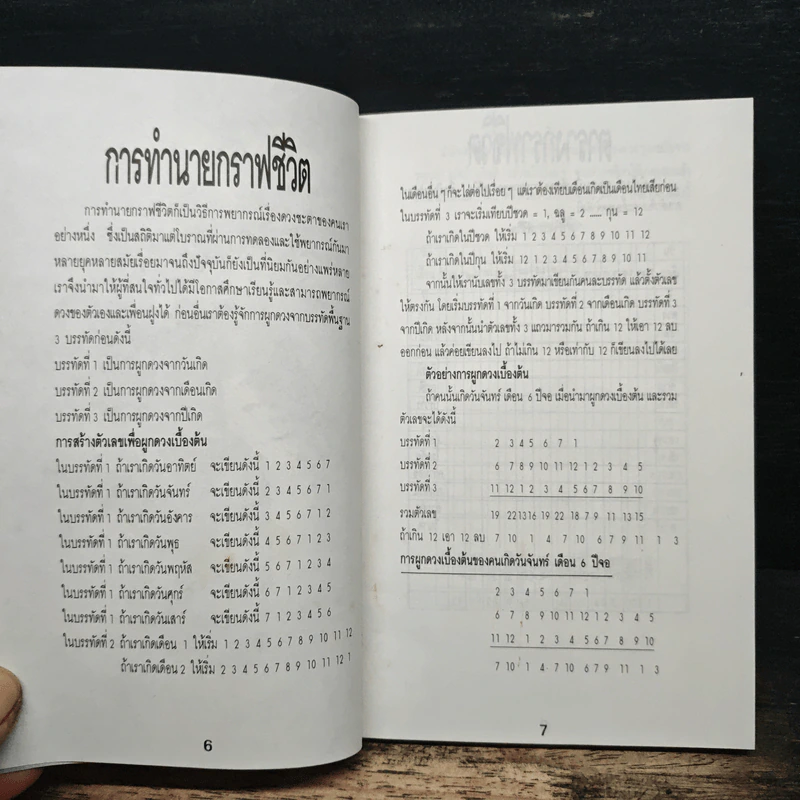 การทำนายกราฟชีวิต
การทำนายกราฟชีวิตก็เป็นวิธีการพยากรณ์เรื่องดวงชะตาของคนเรา
อย่างหนึ่ง ซึ่งเป็นสถิติมาแต่โบราณที่ผ่านการทดลองและใช้พยากรณ์กันมา
หลายยุคหลายสมัยเรื่อยมาจนถึงปัจจุบันก็ยังเป็นที่นิยมกันอย่างแพร่หลาย
เราจึงนำมาให้ผู้ที่สนใจทั่วไปได้มีโอกาสศึกษาเรียนรู้และสามารถพยากรณ์
ดวงของตัวเองและเพื่อนฝูงได้ ก่อนอื่นเราต้องรู้จักการผูกดวงจากบรรทัดพื้นฐาน
3 บรรทัดก่อนดังนี้
บรรทัดที่ 1 เป็นการผูกดวงจากวันเกิด
บรรทัดที่ 2 เป็นการผูกดวงจากเดือนเกิด
บรรทัดที่ 3 เป็นการผูกดวงจากปีเกิด
การสร้างตัวเลขเพื่อผูกดวงเบื้องต้น
ในบรรทัดที่ 1 ถ้าเราเกิดวันอาทิตย์ จะเขียนดังนี้ 1 2 3 4 5 6 7
ในบรรทัดที่ 1 ถ้าเราเกิดวันจันทร์ จะเขียนดังนี้ 2 3 4 5 6 7 1
ในบรรทัดที่ 1 ถ้าเราเกิดวันอังคาร จะเขียนดังนี้ 3 4 5 6 7 1 2
ในบรรทัดที่ 1 ถ้าเราเกิดวันพุธ จะเขียนดังนี้ 4 5 6 7 1 2 3
ในบรรทัดที่ 1 ถ้าเราเกิดวันพฤหัส จะเขียนดังนี้ 5 6 7 1 2 3 4
ในบรรทัดที่ 1 ถ้าเราเกิดวันศุกร์ จะเขียนดังนี้ 6 7 1 2 3 4 5
ในบรรทัดที่ 1 ถ้าเราเกิดวันเสาร์ จะเขียนดังนี้ 7 1 2 3 4 5 6
ในบรรทัดที่ 2 ถ้าเราเกิดเดือน 1 ให้เริ่ม 1 2 3 4 5 6 7 8 9 10 11 12
ถ้าเราเกิดเดือน 2 ให้เริ่ม 2 3 4 5 6 7 8 9 10 11 12 1
6
ในเดือนอื่น ๆ ก็จะไล่ต่อไปเรื่อย ๆ แต่เราต้องเทียบเดือนเกิดเป็นเดือนไทยเสียก่อน
ในบรรทัดที่ 3 เราจะเริ่มเทียบปีชวด = 1, ฉลู = 2 ..... กุน = 12
ถ้าเราเกิดในปีชวด ให้เริ่ม 1 2 3 4 5 6 7 8 9 10 11 12
ถ้าเราเกิดในปีกุน ให้เริ่ม 12 1 2 3 4 5 6 7 8 9 10 11
จากนั้นให้เรานับเลขทั้ง 3 บรรทัดมาเขียนกันคนละบรรทัด แล้วตั้งตัวเลข
ให้ตรงกัน โดยเริ่มบรรทัดที่ 1 จากวันเกิด บรรทัดที่ 2 จากเดือนเกิด บรรทัดที่ 3
จากปีเกิด หลังจากนั้นนำตัวเลขทั้ง 3 แถวมารวมกัน ถ้าเกิน 12 ให้เอา 12 ลบ
ออกก่อน แล้วค่อยเขียนลงไป ถ้าไม่เกิน 12 หรือเท่ากับ 12 ก็เขียนลงไปได้เลย
ตัวอย่างการผูกดวงเบื้องต้น
ถ้าคนนั้นเกิดวันจันทร์ เดือน 6 ปีจอ เมื่อนำมาผูกดวงเบื้องต้น และรวม
ตัวเลขจะได้ดังนี้
บรรทัดที่ 1 2 3 4 5 6 7 1
บรรทัดที่ 2 6 7 8 9 10 11 12 1 2 3 4 5
บรรทัดที่ 3 11 12 1 2 3 4 5 6 7 8 9 10
รวมตัวเลข 19 22 13 16 19 22 18 7 9 11 13 15
ถ้าเกิน 12 เอา 12 ลบ 7 10 1 4 7 10 6 7 9 11 1 3
การผูกดวงเบื้องต้นของคนเกิดวันจันทร์ เดือน 6 ปีจอ
2 3 4 5 6 7 1
6 7 8 9 10 11 12 1 2 3 4 5
11 12 1 2 3 4 5 6 7 8 9 10
7 10 1 4 7 10 6 7 9 11 1 3
7